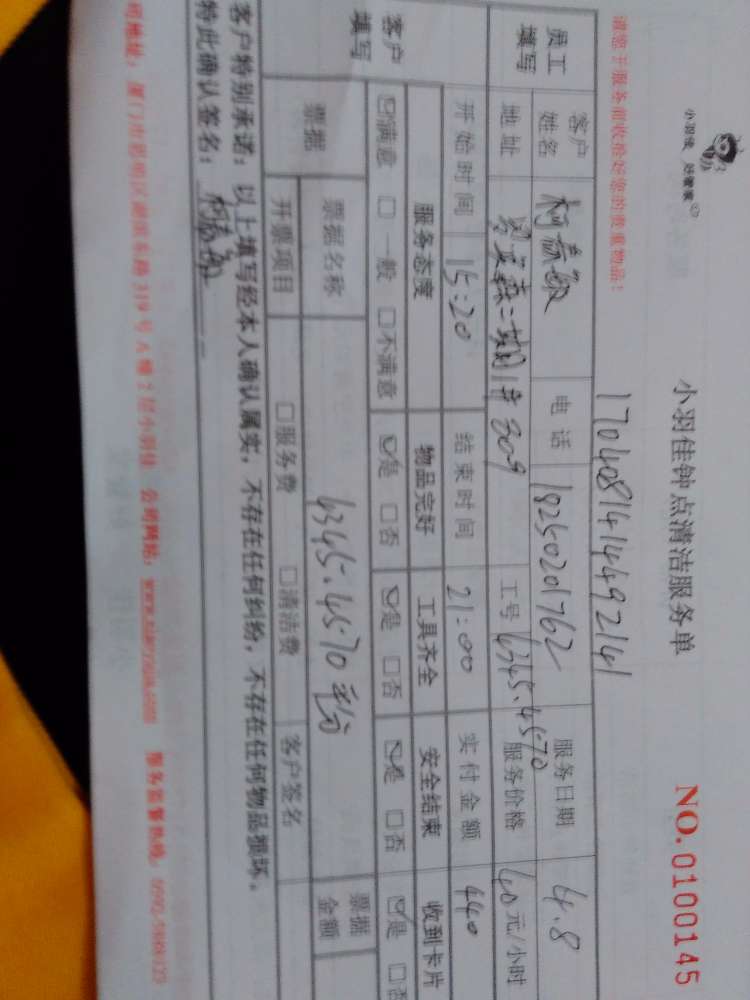 小羽佳 好管家
小羽佳钟点清洁服务单
NO.0100145
请您于服务前收拾好您的贵重物品！
1704081414492141
员工填写 客户姓名 电话 18250201762 服务日期 4.8
地址 309 工号 4345.4570 服务价格 40元/小时
开始时间 15:20 结束时间 21:00 实付金额 440
客户填写 服务态度 物品完好 工具齐全 安全结束 收到卡片
☑满意 □一般 □不满意 ☑是 □否 ☑是 □否 ☑是 □否 ☑是 □否
票据 票据名称 4345.4570 平分 票据金额
开票项目 □服务费 □清洁费 客户签名
客户特别承诺：以上填写经本人确认属实，不存在任何纠纷，不存在任何物品损坏。
特此确认签名：
司地址：厦门市思明区 319号A幢2层小羽佳 公司网站： 服务监督热线：